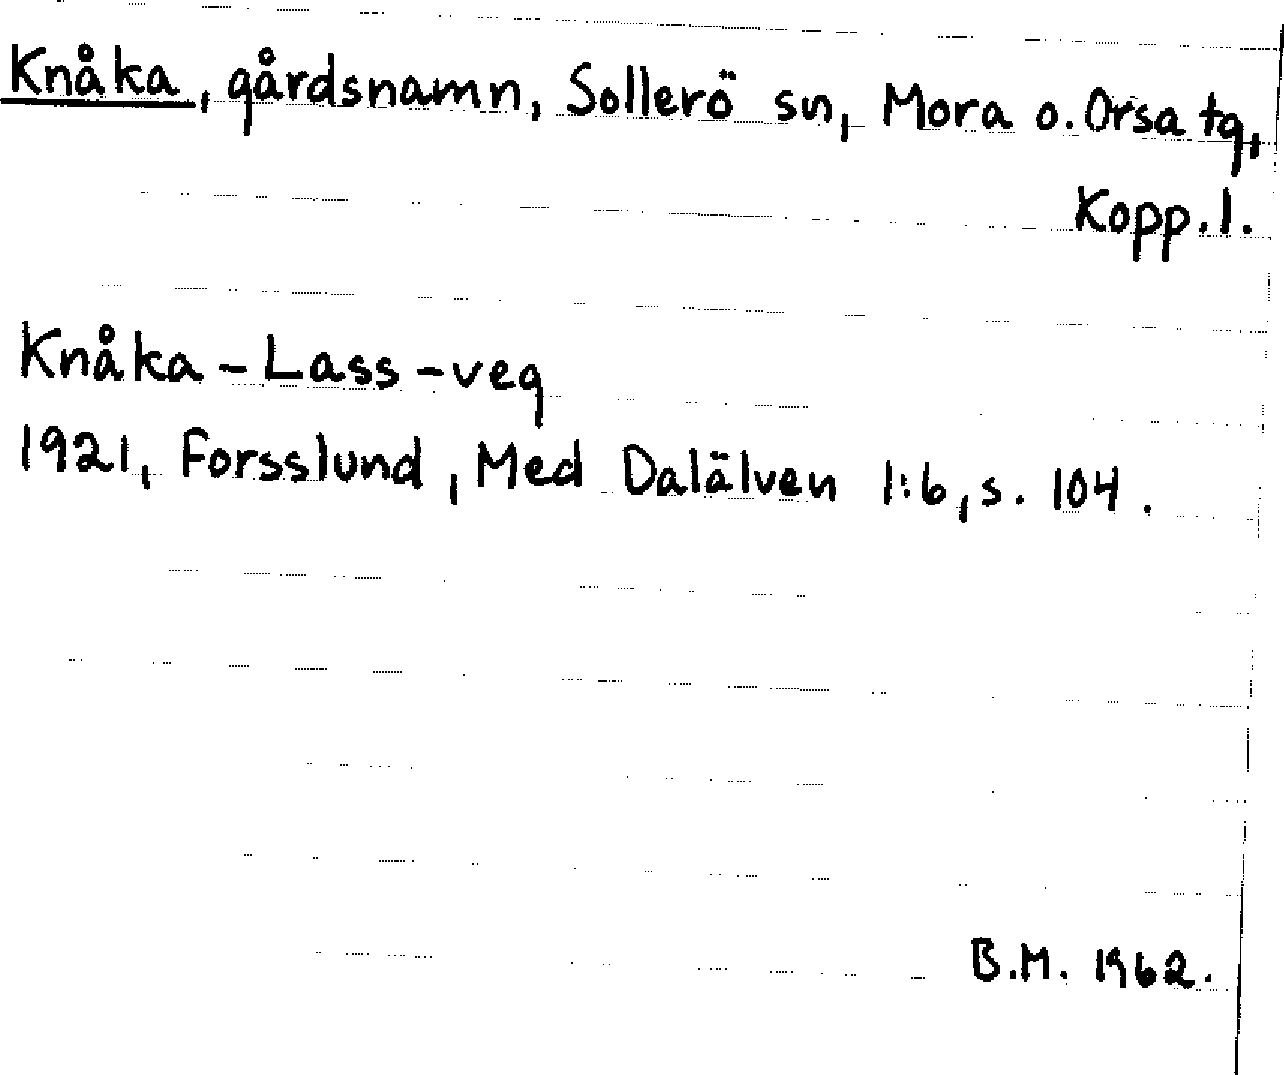 Knåka, gårdsnamn, Sollerö sn, Mora o. Orsa tg,
Kopp. l.
Knåka-Lass-veg
1921, Forsslund, Med Dalälven 1:6, s. 104.
B.M. 1962.